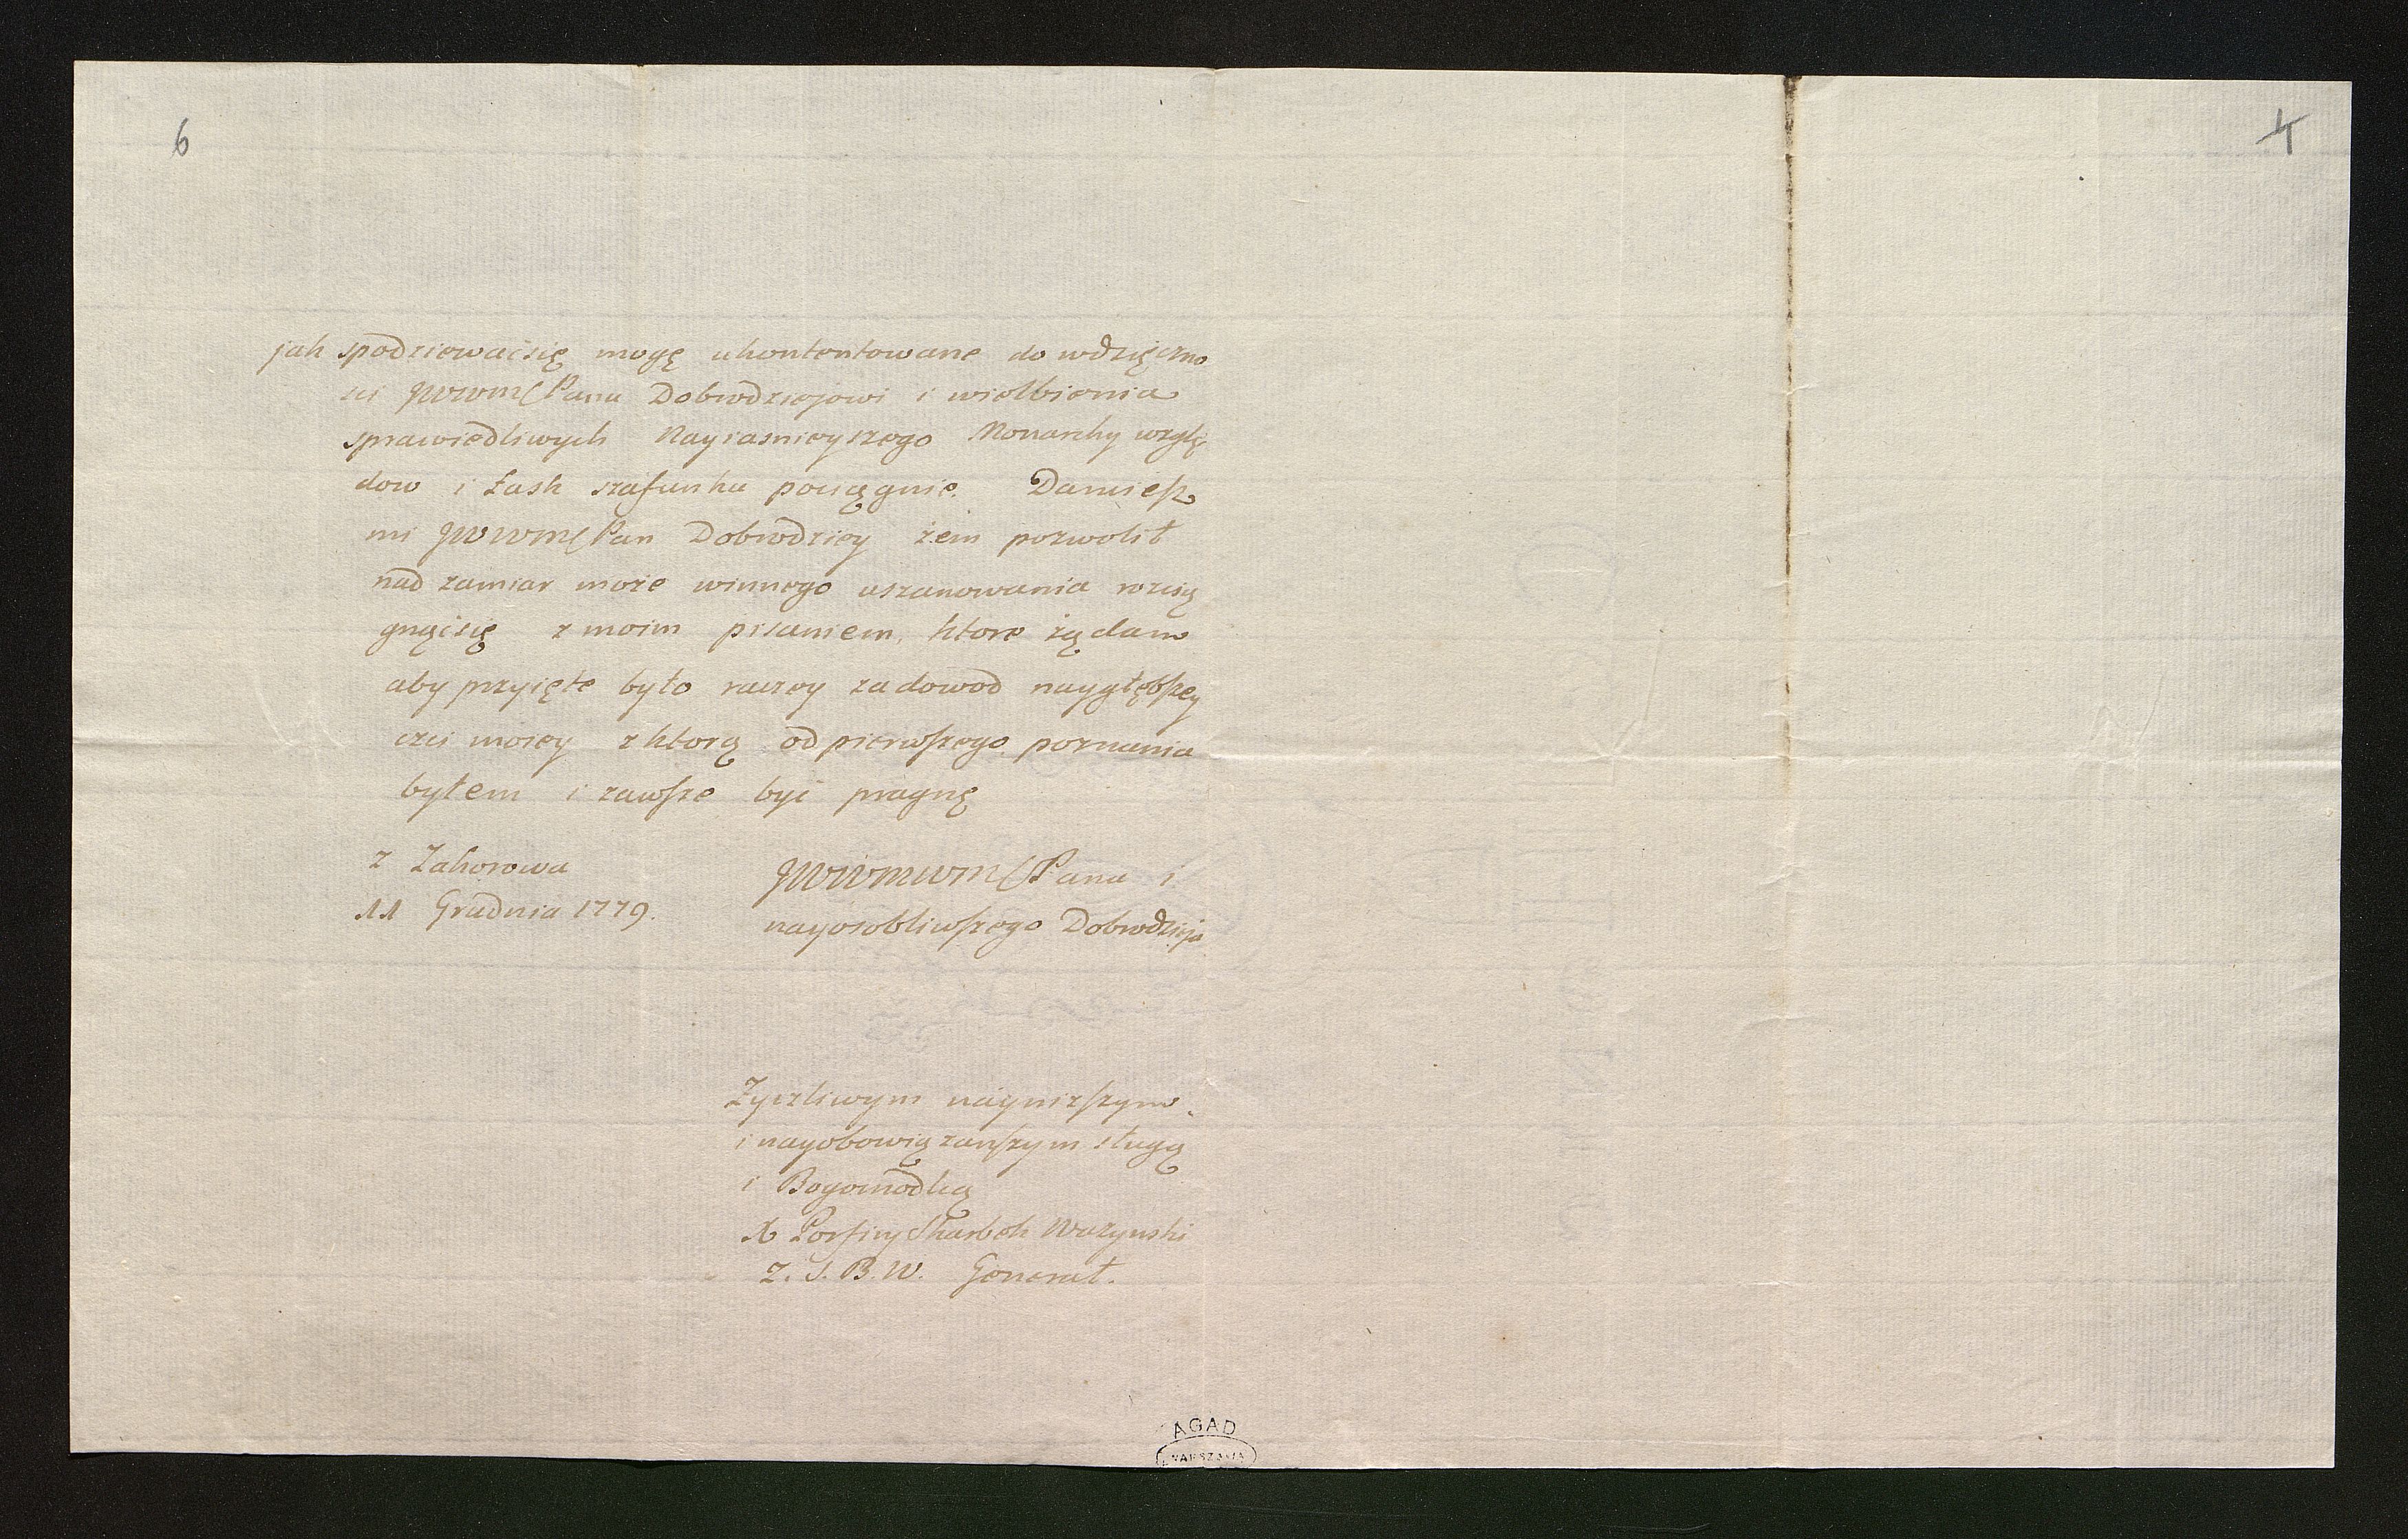 6
4
jak spodziewać się mogę ukontentowane do wdzięczno
sci JWWMCPana Dobrodziejowi i wielbienia
sprawiedliwych Nayiasnieyszego Monarchy wzglę
dow i Łask szafunku pociągnie. Daruiesz
mi JWWMCPan Dobrodziey żem pozwolił
nad zamiar może winnego uszanowania rozcią
gnąć się z moim pisaniem, ktore żądam
aby przyięte było raczey za dowod naygłębszey
czci moiey z ktorą od pierwszego poznania
byłem i zawsze być pragnę
z Zahorowa
11 Grudnia 1779.
JWWMWMCPana i
nayosobliwszego Dobrodzieja
Zyczliwym naynizszym
i nayobowiązanszym sługą
i Bogomodlcą
X Porfiry Skarbek Ważynski
Z. S. B. W. Generał.
AGAD
WARSZAWA